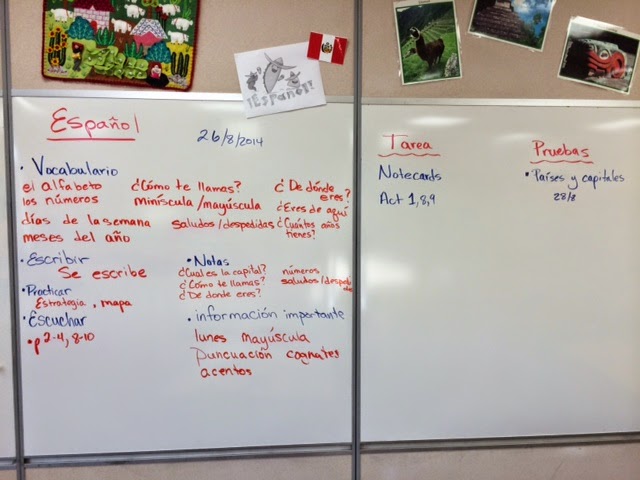 ¡Español!
Español
26/8/2014
• Vocabulario
el alfabeto
los números
días de la semana
meses del año
¿Cómo te llamas?
miníscula/mayúscula
saludos/despedidas
¿De dónde
eres?
¿Eres de aquí
¿Cuántos años
tienes?
• Escribir
Se escribe
• Practicar
Estrategia, mapa
• Escuchar
• p 2-4, 8-10
• Notas
¿Cual es la capital?
¿Cómo te llamas?
¿De donde eres?
números
saludos/despedi
de
• información importante
lunes mayúscula
puncuación cognates
acentos
Tarea
Notecards
Act 1,8,9
Pruebas
• Países y capitales
28/8